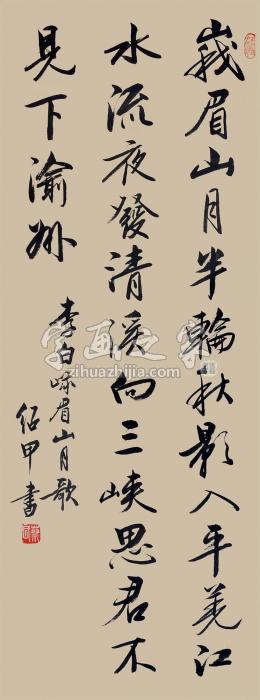 峩眉山月半輪秋影入平羌江
水流夜發清溪向三峡思君不
見下渝州
李白峩眉山月歌
紹甲書
字画之家
zihuazhijia.com